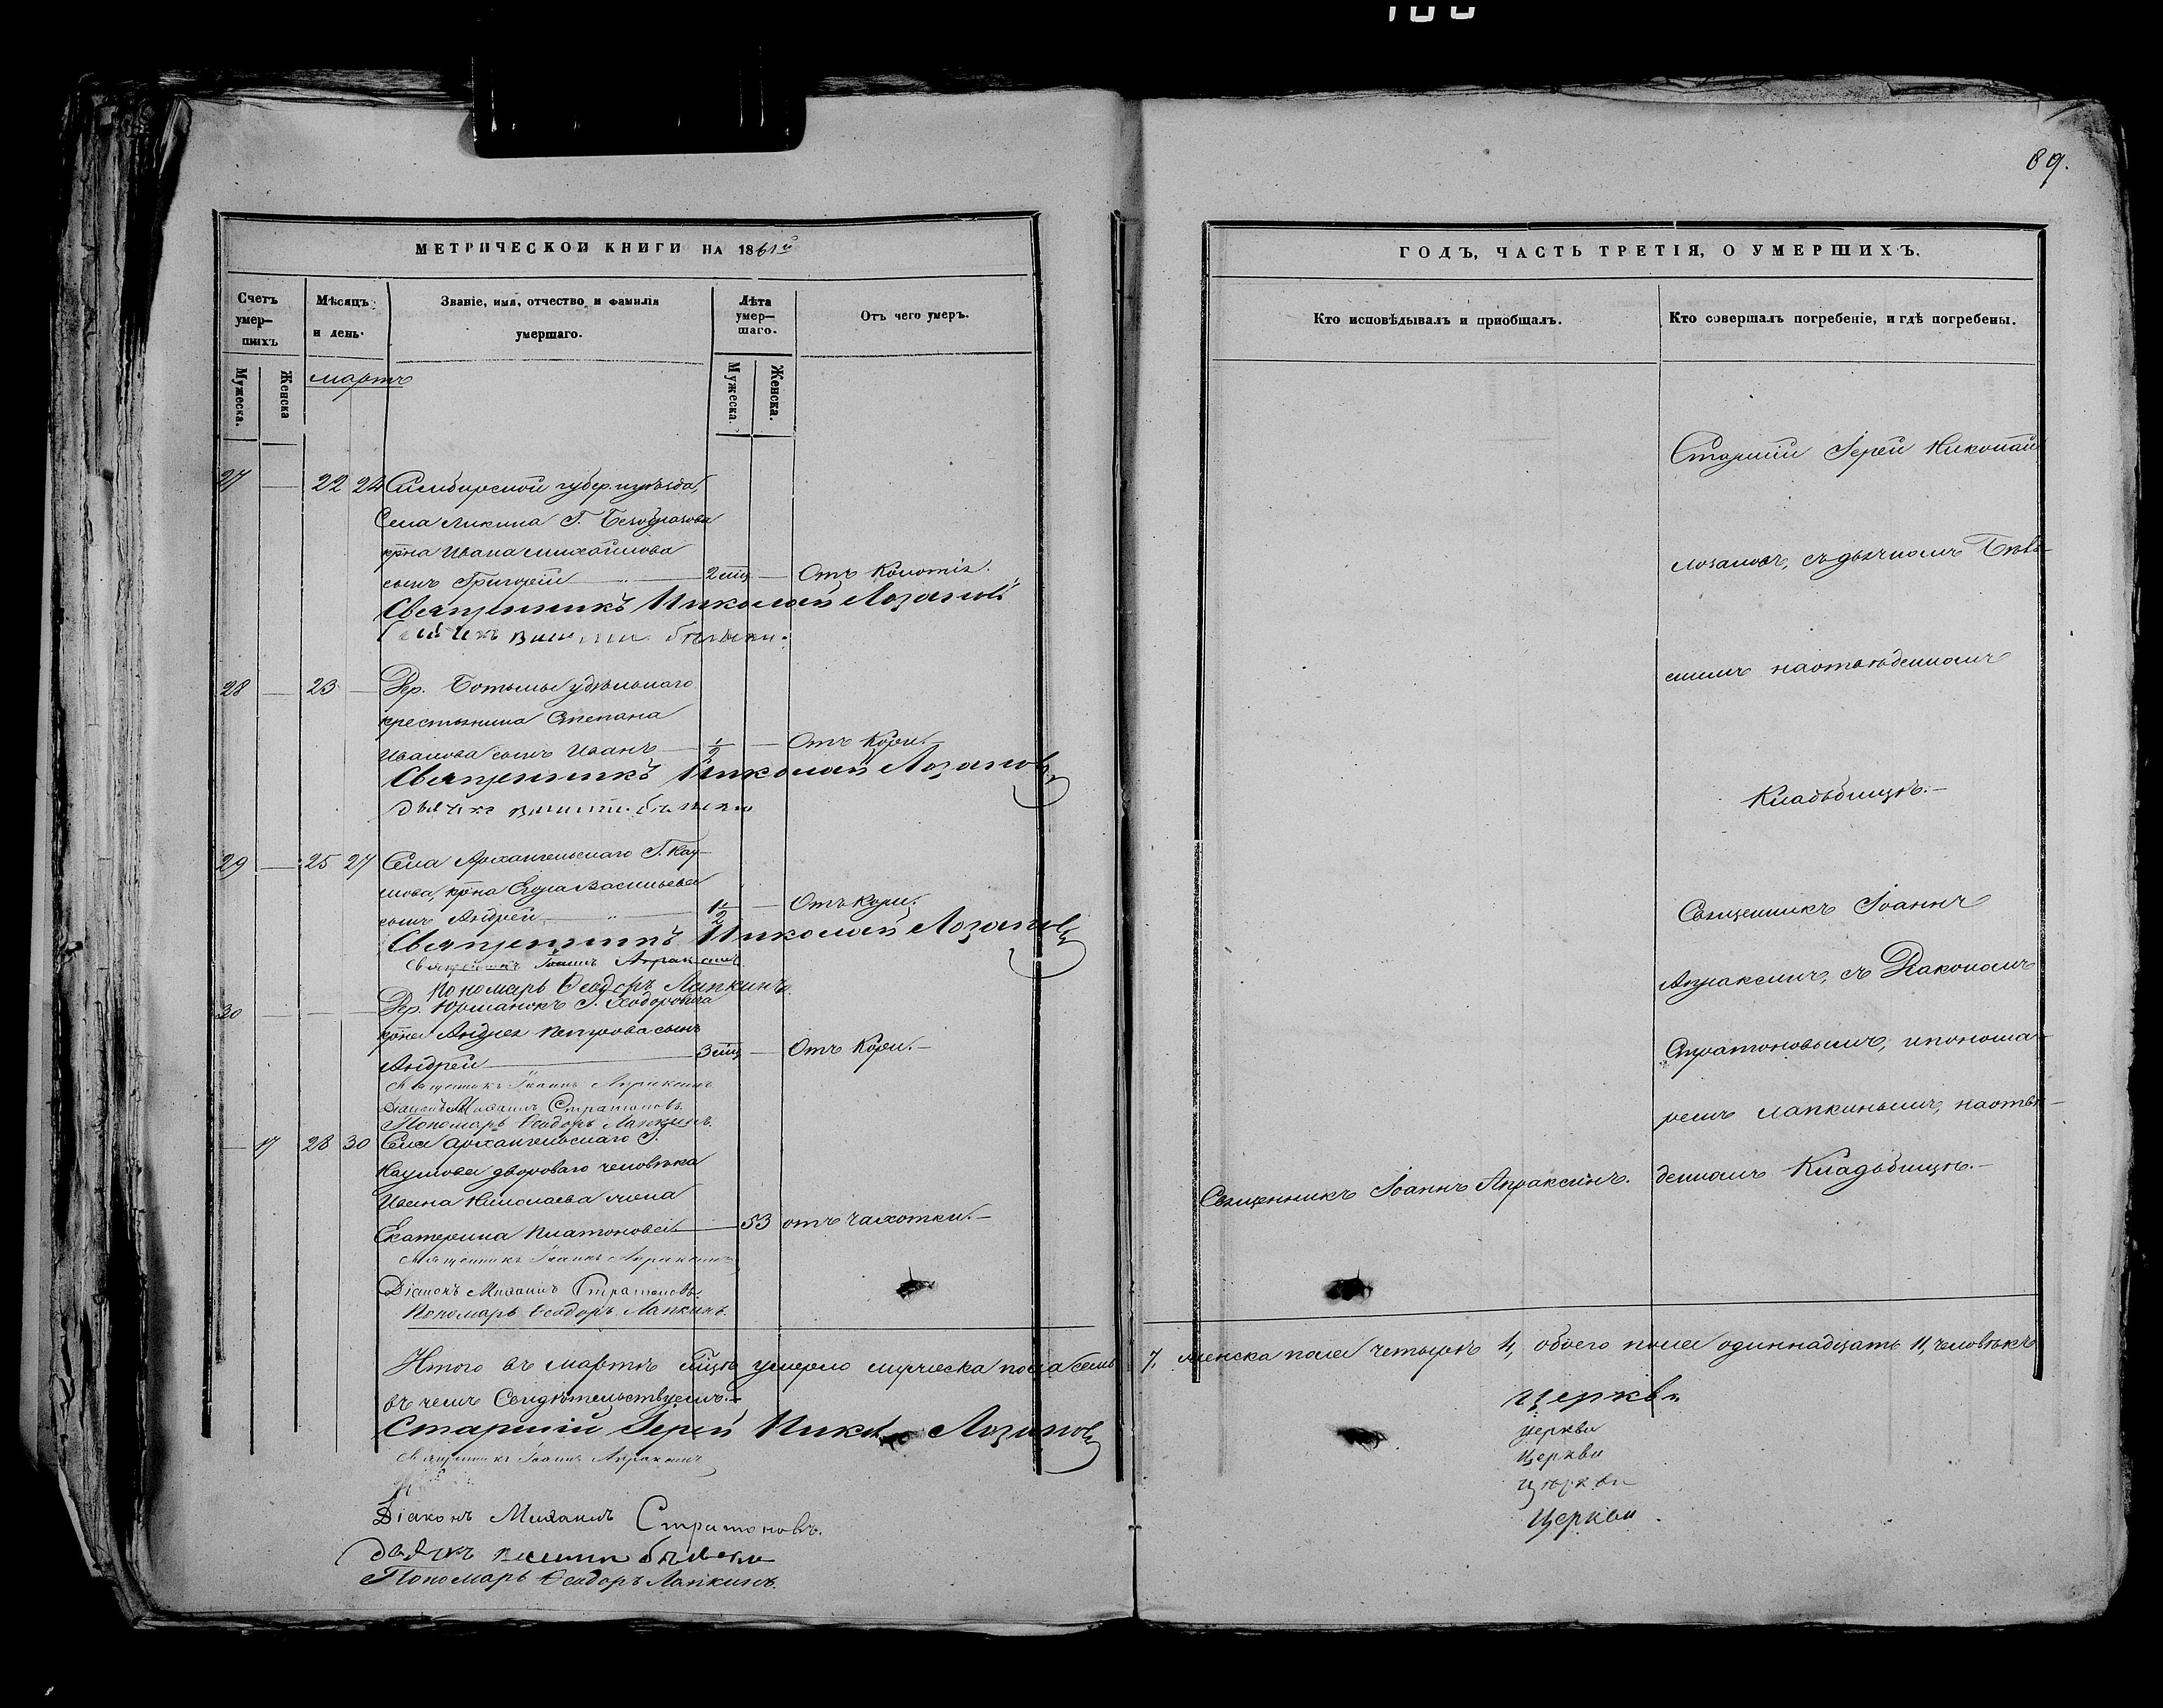 89.
МЕТРИЧЕСКОЙ КНИГИ НА 1861й
Счетъ умер-шихъ
Мѣсяцъ и день.
Званіе, имя, отчество и фамилія умершаго.
Лѣта умер-шаго.
Отъ чего умеръ.
Мужеска.
Женска
Мужеска.
Женска.
мартъ
27 22 24 Симбирской губер. и уѣзда,
Села г. Безобразова
крна Ивана Михайлова
сынъ Григорій 2 мц Отъ Колотія.
Священникъ Николай Лозановъ
28 23 Дер. Ботьмы удѣльнаго
крестьянина Степана
Иванова сынъ Иванъ 1/2 Отъ Кори.
Священникъ Николай Лозановъ
29 25 27 Села Архангельскаго Г. Нау-
мова, крна Егора Васильева
сынъ Андрей 1 1/2 Отъ Кори.
Священникъ Николай Лозановъ
Священникъ Іоаннъ Апраксинъ
Пономарь Ѳеодоръ Лапкинъ.
30 Дер. Юрманокъ Г.
крна Андрея Петрова сынъ
Андрей 3 мц Отъ Кори.
Священникъ Іоаннъ Апраксинъ
Діаконъ Михаилъ Стратоновъ.
Пономарь Ѳеодоръ Лапкинъ.
17 28 30 Села Архангельскаго Г.
Наумова двороваго человѣка
Ивана Николаева жена
Екатерина Платонова 53 отъ чахотки.
Священникъ Іоаннъ Апраксинъ
Діаконъ Михаилъ Стратоновъ.
Пономарь Ѳеодоръ Лапкинъ.
Итого въ мартѣ мцѣ умерло мужеска пола семь
въ чемъ Свидѣтельствуемъ.
Старшій Іерей Лозановъ
Священникъ Іоаннъ Апраксинъ
Діаконъ Михаилъ Стратоновъ.
Пономарь Ѳеодоръ Лапкинъ.
ГОДЪ, ЧАСТЬ ТРЕТІЯ, О УМЕРШИХЪ.
Кто исповѣдывалъ и пріобщалъ.
Кто совершалъ погребеніе, и гдѣ погребены.
Старшій Іерей Николай
Лозановъ, съ дьячкомъ Бѣль-
скимъ на отведенномъ
Кладбищѣ.
Священникъ Іоаннъ
Апраксинъ, съ Діакономъ
Стратоновымъ, и понома-
ремъ Лапкинымъ, на отве-
Священникъ Іоаннъ Апраксинъ. денномъ Кладбищѣ.
7, женска пола четыре 4, обоего пола одиннадцать 11, человѣкъ
Церкви
церкви
Церкви
церкви
Церкви